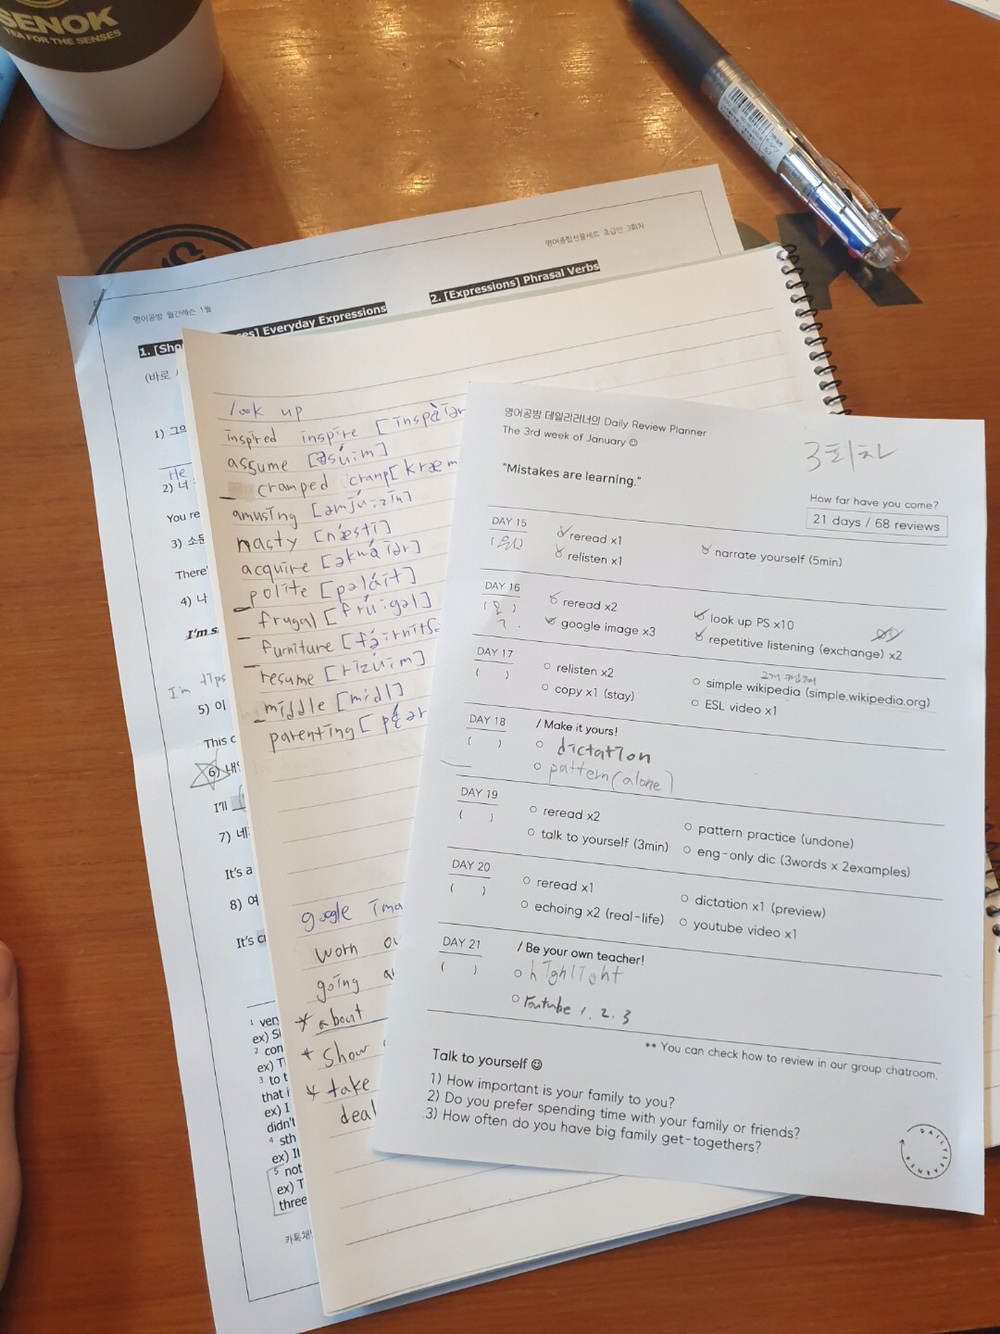 SENOK
TEA FOR THE SENSES
영어공방 월간레슨 1월
영어종합선물세트 초급반 3회차
1. [Sho
es] Everyday Expressions
2. [Expressions] Phrasal Verbs
(바로
1) 그으
He
2) 너
You re
3) 소문
There'
4) 나
I'm s
I'm
5) 이
This c
6) 내
I'll
7) 네
It's a
8) 여
It's cl
1 ven
ex) S
2 con
ex) T
3 to t
that i
ex) I
didn't
4 sth
ex) It
5 not
ex) T
three
look up
inspired inspire [inspàiər
assume [əsú:m]
cramped cramp[kræm
amusing [əmjú:ziŋ]
nasty [nǽsti]
acquire [əkwáiər]
polite [pəláit]
frugal [frú:gəl]
furniture [fə́:rnitʃ
resume [rizú:m]
middle [midl]
parenting [pɛ́ər
google ima
worn ou
going
* about
* show
* take
deal
영어공방 데일리러너의 Daily Review Planner
The 3rd week of January
3회차
"Mistakes are learning."
How far have you come?
21 days / 68 reviews
DAY 15
reread x1
relisten x1
narrate yourself (5min)
DAY 16
reread x2
google image x3
look up PS x10
repetitive listening (exchange) x2
DAY 17
( )
relisten x2
copy x1 (stay)
simple wikipedia (simple.wikipedia.org)
ESL video x1
DAY 18
( )
/ Make it yours!
dictation
pattern(alone)
DAY 19
( )
reread x2
talk to yourself (3min)
pattern practice (undone)
eng-only dic (3words x 2examples)
DAY 20
( )
reread x1
echoing x2 (real-life)
dictation x1 (preview)
youtube video x1
DAY 21
( )
/ Be your own teacher!
highlight
Youtube 1, 2, 3
** You can check how to review in our group chatroom.
Talk to yourself
1) How important is your family to you?
2) Do you prefer spending time with your family or friends?
3) How often do you have big family get-togethers?
DAILYLEARNER